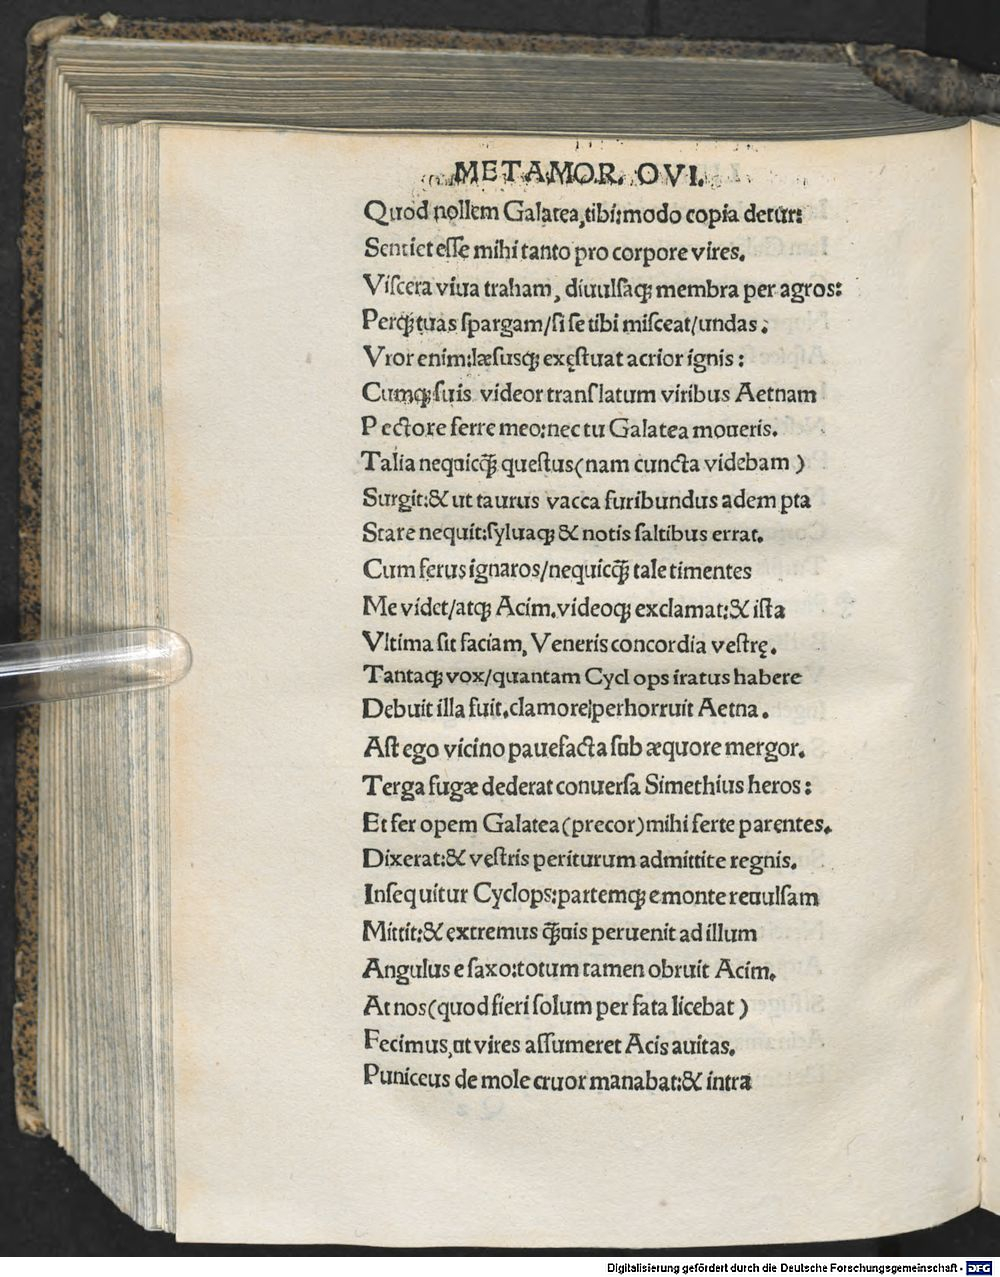 METAMOR. OVI.
Quod nollem Galatea,tibi:modo copia detur:
Sentiet eſſe mihi tanto pro corpore vires.
Viſcera viua traham, diuulſaqꝫ membra per agros:
Perqꝫ tuas ſpargam/ſi ſe tibi miſceat/undas.
Vror enim:læſusqꝫ exęſtuat acrior ignis:
Cumqꝫ ſuis videor tranſlatum viribus Aetnam
Pectore ferre meo:nec tu Galatea moueris.
Talia nequicq̃ȝ queſtus(nam cuncta videbam)
Surgit:& ut taurus vacca furibundus adempta
Stare nequit:ſyluaqꝫ & notis ſaltibus errat.
Cum ferus ignaros/nequicq̃ȝ tale timentes
Me videt/atqꝫ Acim.videoqꝫ exclamat:& iſta
Vltima ſit faciam, Veneris concordia veſtrę.
Tantaqꝫ vox/quantam Cyclops iratus habere
Debuit illa fuit.clamore/perhorruit Aetna.
Aſt ego vicino pauefacta ſub æquore mergor.
Terga fugæ dederat conuerſa Simethius heros:
Et fer opem Galatea(precor)mihi ferte parentes.
Dixerat:& veſtris periturum admittite regnis.
Inſequitur Cyclops:partemqꝫ e monte reuulſam
Mittit:& extremus q̃ȝuis peruenit ad illum
Angulus e ſaxo:totum tamen obruit Acim.
At nos(quod fieri ſolum per fata licebat)
Fecimus,ut vires aſſumeret Acis auitas.
Puniceus de mole cruor manabat:& intra
Digitalisierung gefördert durch die Deutsche Forschungsgemeinschaft - DFG